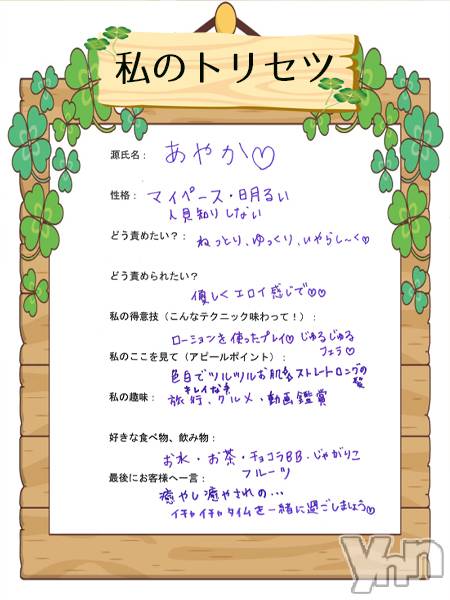 私のトリセツ
源氏名： あやか♡
性格： マイペース・明るい
人見知りしない
どう責めたい？： ねっとり、ゆっくり、いやらし〜く♡
どう責められたい？
優しくエロイ感じで♡♡
私の得意技（こんなテクニック味わって！）：
ローションを使ったプレイ♡じゅるじゅる
フェラ♡
私のここを見て（アピールポイント）：
色白でツルツルお肌 ストレートロングの
キレイな 髪
私の趣味： 旅行、グルメ・動画鑑賞
好きな食べ物、飲み物：
お水・お茶・チョコラBB・じゃがりこ
フルーツ
最後にお客様へ一言：
癒やし癒やされの・・・
イチャイチャタイムを一緒に過ごしましょう♡